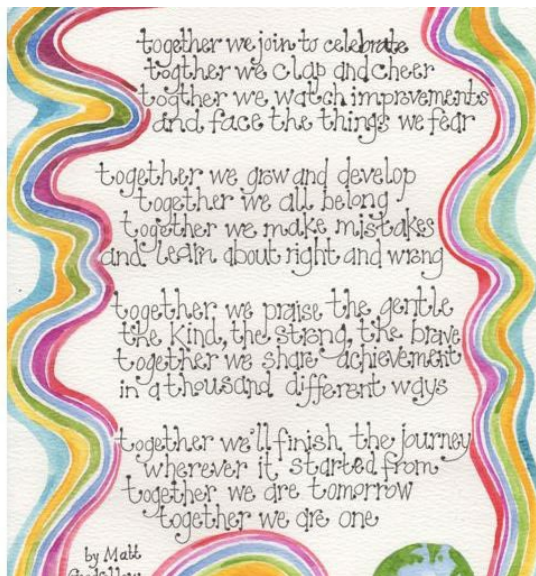 together we join to celebrate
togther we clap and cheer
togther we watch improvements
and face the things we fear
together we grow and develop
together we all belong
together we make mistakes
and learn about right and wrong
together we praise the gentle
the kind, the strong, the brave
together we share achievement
in a thousand different ways
together we'll finish the journey
wherever it started from
together we are tomorrow
together we are one
by Matt